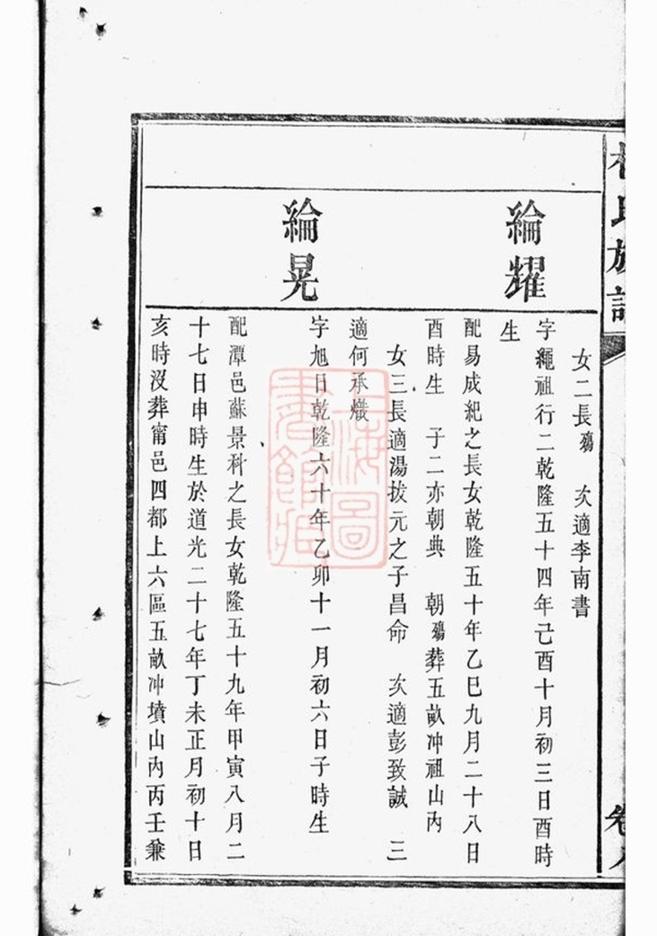 氏族譜
卷
女二長殤　次適李南書
綸耀
字繩祖行二乾隆五十四年己酉十月初三日酉時
生
配易成紀之長女乾隆五十年乙巳九月二十八日
酉時生　子二亦朝典　朝殤葬五畝冲祖山內
女三長適湯拔元之子昌命　次適彭致誠　三
適何承熾
綸晃
字旭日乾隆六十年乙卯十一月初六日子時生
配潭邑蘇景科之長女乾隆五十九年甲寅八月二
十七日申時生於道光二十七年丁未正月初十日
亥時沒葬甯邑四都上六區五畝冲墳山內丙壬兼
上海圖
書館藏